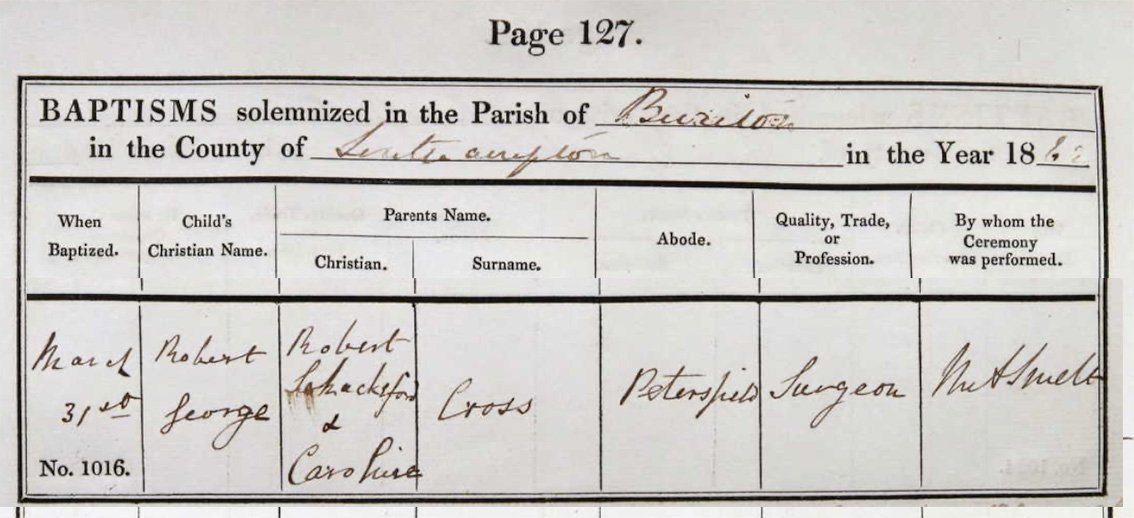 Page 127.
BAPTISMS solemnized in the Parish of Buriton
in the County of Southampton in the Year 18
When Baptized.
Child's Christian Name.
Parents Name.
Christian.
Surname.
Abode.
Quality, Trade, or Profession.
By whom the Ceremony was performed.
March
31st
No. 1016.
Robert
George
Robert
Shackleford
&
Caroline
Cross
Petersfield
Surgeon
Smelt